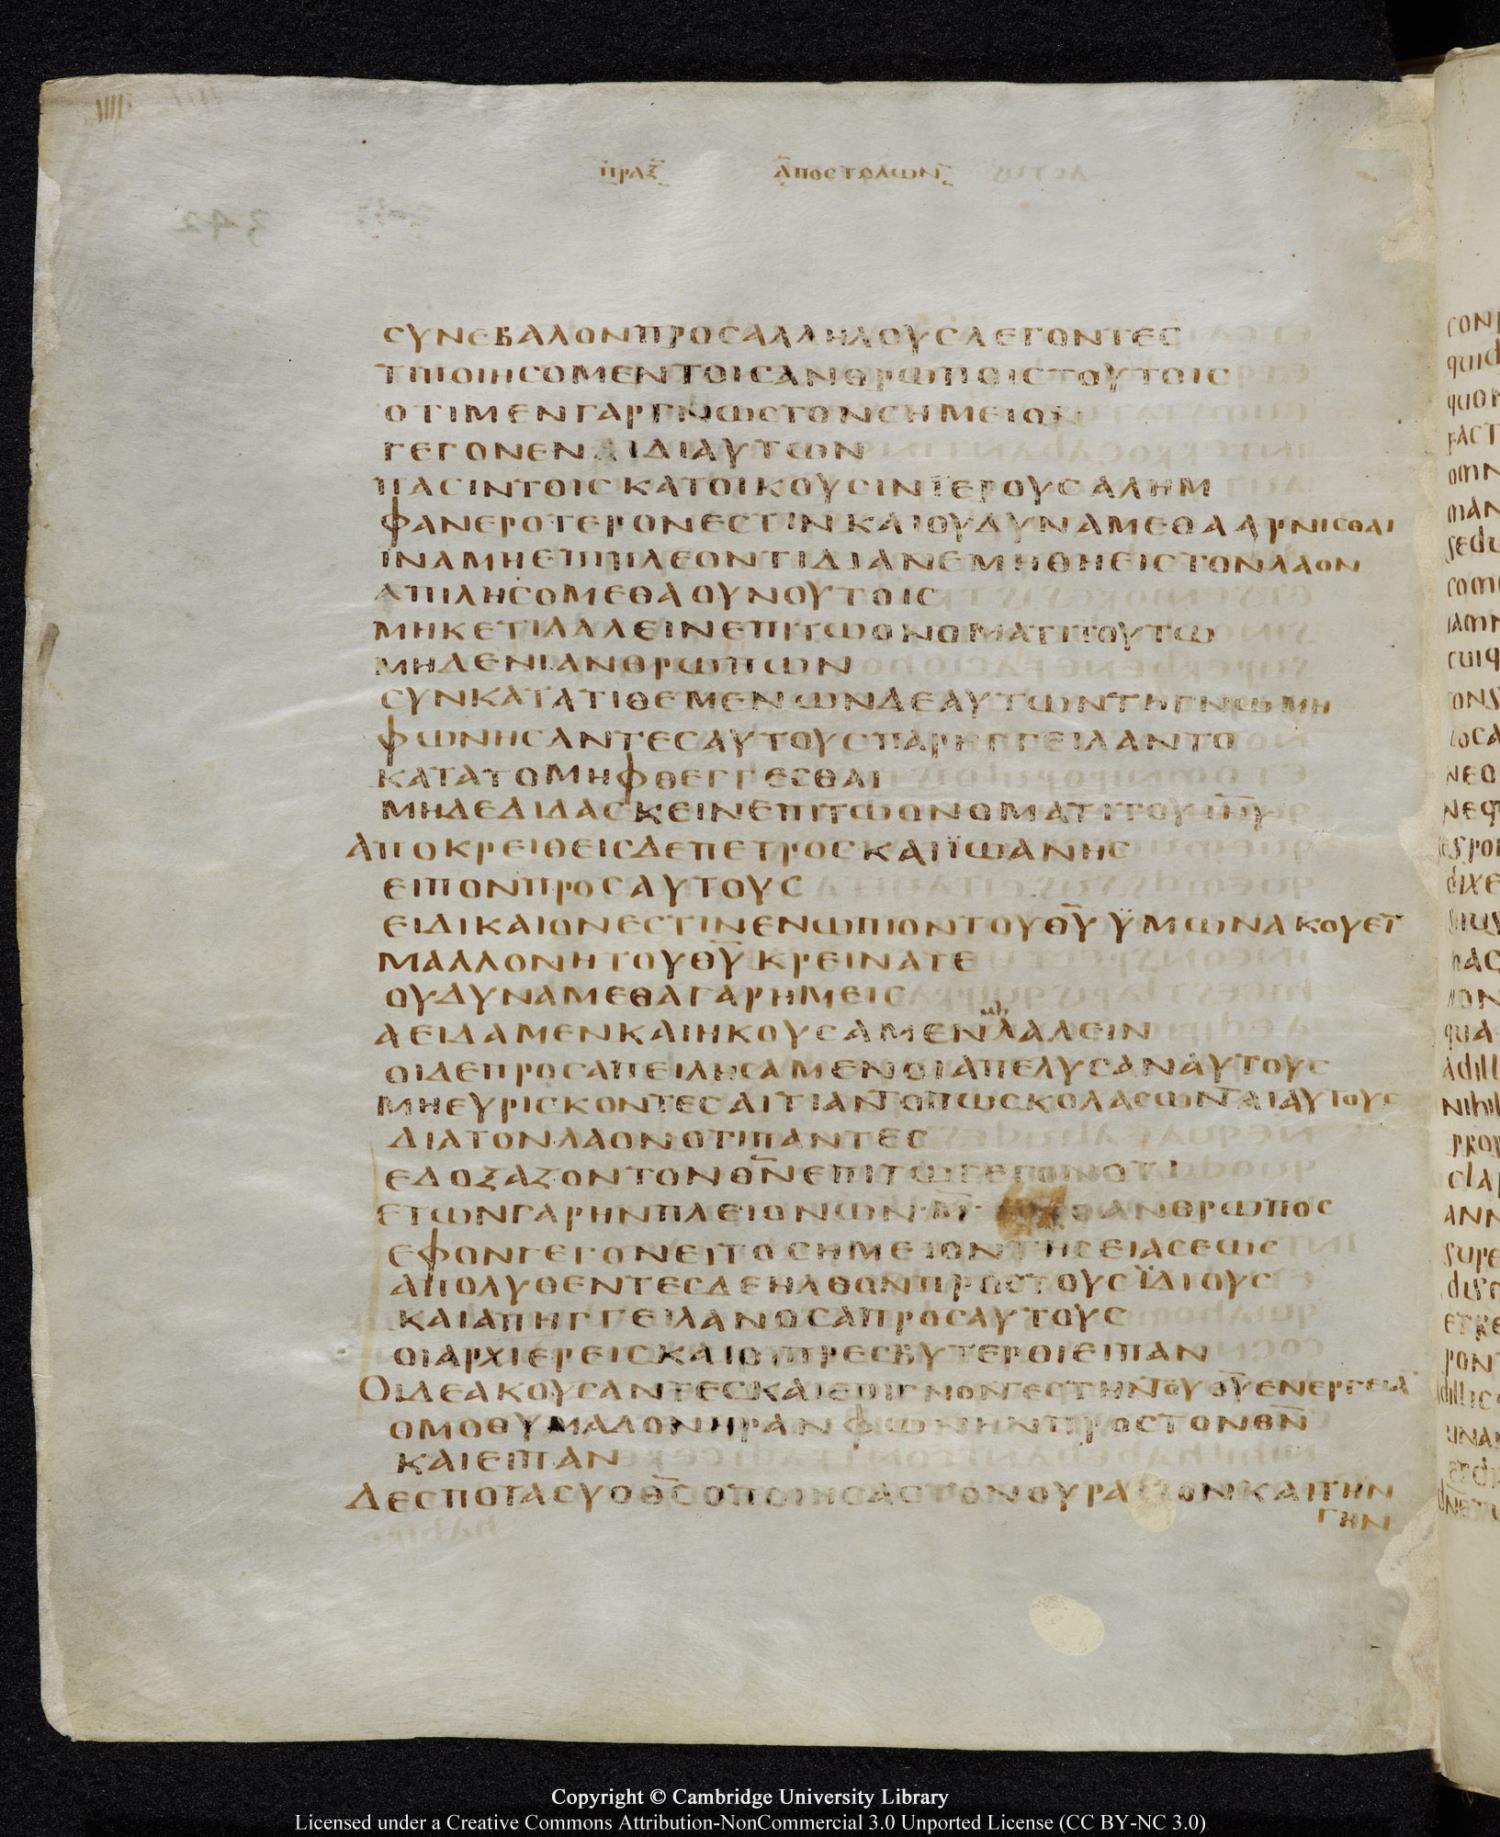 ΠΡΑΞ ΑΠΟСΤΟΛΩΝ
СΥΝΕΒΑΛΟΝΠΡΟСΑΛΛΗΛΟΥСΛΕΓΟΝΤΕС
ΤΙΠΟΙΗСΟΜΕΝΤΟΙСΑΝΘΡΩΠΟΙСΤΟΥΤΟΙС
ΟΤΙΜΕΝΓΑΡΓΝΩСΤΟΝСΗΜΕΙΟΝ
ΓΕΓΟΝΕΝΑΙΔΙΑΥΤΩΝ
ΠΑСΙΝΤΟΙСΚΑΤΟΙΚΟΥСΙΝΪΕΡΟΥСΑΛΗΜ
ΦΑΝΕΡΟΤΕΡΟΝΕСΤΙΝΚΑΙΟΥΔΥΝΑΜΕΘΑΑΡΝΙСΘΑΙ
ΪΝΑΜΗΕΠΙΠΛΕΟΝΤΙΔΙΑΝΕΜΗΘΗΕΙСΤΟΝΛΑΟΝ
ΑΠΙΛΗСΟΜΕΘΑΟΥΝΟΥΤΟΙС
ΜΗΚΕΤΙΛΑΛΕΙΝΕΠΙΤΩΟΝΟΜΑΤΙΤΟΥΤΩ
ΜΗΔΕΝΙΑΝΘΡΩΠΩΝ
СΥΝΚΑΤΑΤΙΘΕΜΕΝΩΝΔΕΑΥΤΩΝΤΗΓΝΩΜΗ
ΦΩΝΗСΑΝΤΕСΑΥΤΟΥСΠΑΡΗΓΓΕΙΛΑΝΤΟ
ΚΑΤΑΤΟΜΗΦΘΕΓΓΕСΘΑΙ
ΜΗΔΕΔΙΔΑСΚΕΙΝΕΠΙΤΩΟΝΟΜΑΤΙΤΟΥΙΗΥ
ΑΠΟΚΡΕΙΘΕΙСΔΕΠΕΤΡΟСΚΑΙΪΩΑΝΗС
ΕΙΠΟΝΠΡΟСΑΥΤΟΥС
ΕΙΔΙΚΑΙΟΝΕСΤΙΝΕΝΩΠΙΟΝΤΟΥΘΥΫΜΩΝΑΚΟΥΕΙΝ
ΜΑΛΛΟΝΗΤΟΥΘΥΚΡΕΙΝΑΤΕ
ΟΥΔΥΝΑΜΕΘΑΓΑΡΗΜΕΙС
ΑΕΙΔΑΜΕΝΚΑΙΗΚΟΥСΑΜΕΝ μη ΛΑΛΕΙΝ
ΟΙΔΕΠΡΟСΑΠΕΙΛΗСΑΜΕΝΟΙΑΠΕΛΥСΑΝΑΥΤΟΥС
ΜΗΕΥΡΙСΚΟΝΤΕСΑΙΤΙΑΝΟΠΩСΚΟΛΑСΩΝΤΑΙΑΥΤΟΥС
ΔΙΑΤΟΝΛΑΟΝΟΤΙΠΑΝΤΕС
ΕΔΟΞΑΖΟΝΤΟΝΘΝΕΠΙΤΩΓΕΓΟΝΟΤΙ
ΕΤΩΝΓΑΡΗΝΠΛΕΙΟΝΩΝ·Μ· ΑΝΘΡΩΠΟС
ΕΦΟΝΓΕΓΟΝΕΙΤΟСΗΜΕΙΟΝΤΗСΕΙΑСΕΩС
ΑΠΟΛΥΘΕΝΤΕСΔΕΗΛΘΟΝΠΡΟСΤΟΥСΪΔΙΟΥС
ΚΑΙΑΠΗΓΓΕΙΛΑΝΟСΑΠΡΟСΑΥΤΟΥС
ΟΙΑΡΧΙΕΡΕΙСΚΑΙΟΙΠΡΕСΒΥΤΕΡΟΙΕΙΠΑΝ
ΟΙΔΕΑΚΟΥСΑΝΤΕСΚΑΙΕΠΙΓΝΟΝΤΕСΤΗΝΤΟΥΘΥΕΝΕΡΓΕΙΑ
ΟΜΟΘΥΜΑΔΟΝΗΡΑΝΦΩΝΗΝΠΡΟСΤΟΝΘΝ
ΚΑΙΕΙΠΑΝ
ΔΕСΠΟΤΑСΥΟΘСΟΠΟΙΗСΑСΤΟΝΟΥΡΑΝΟΝΚΑΙΤΗΝ
ΓΗΝ
Copyright © Cambridge University Library
Licensed under a Creative Commons Attribution-NonCommercial 3.0 Unported License (CC BY-NC 3.0)